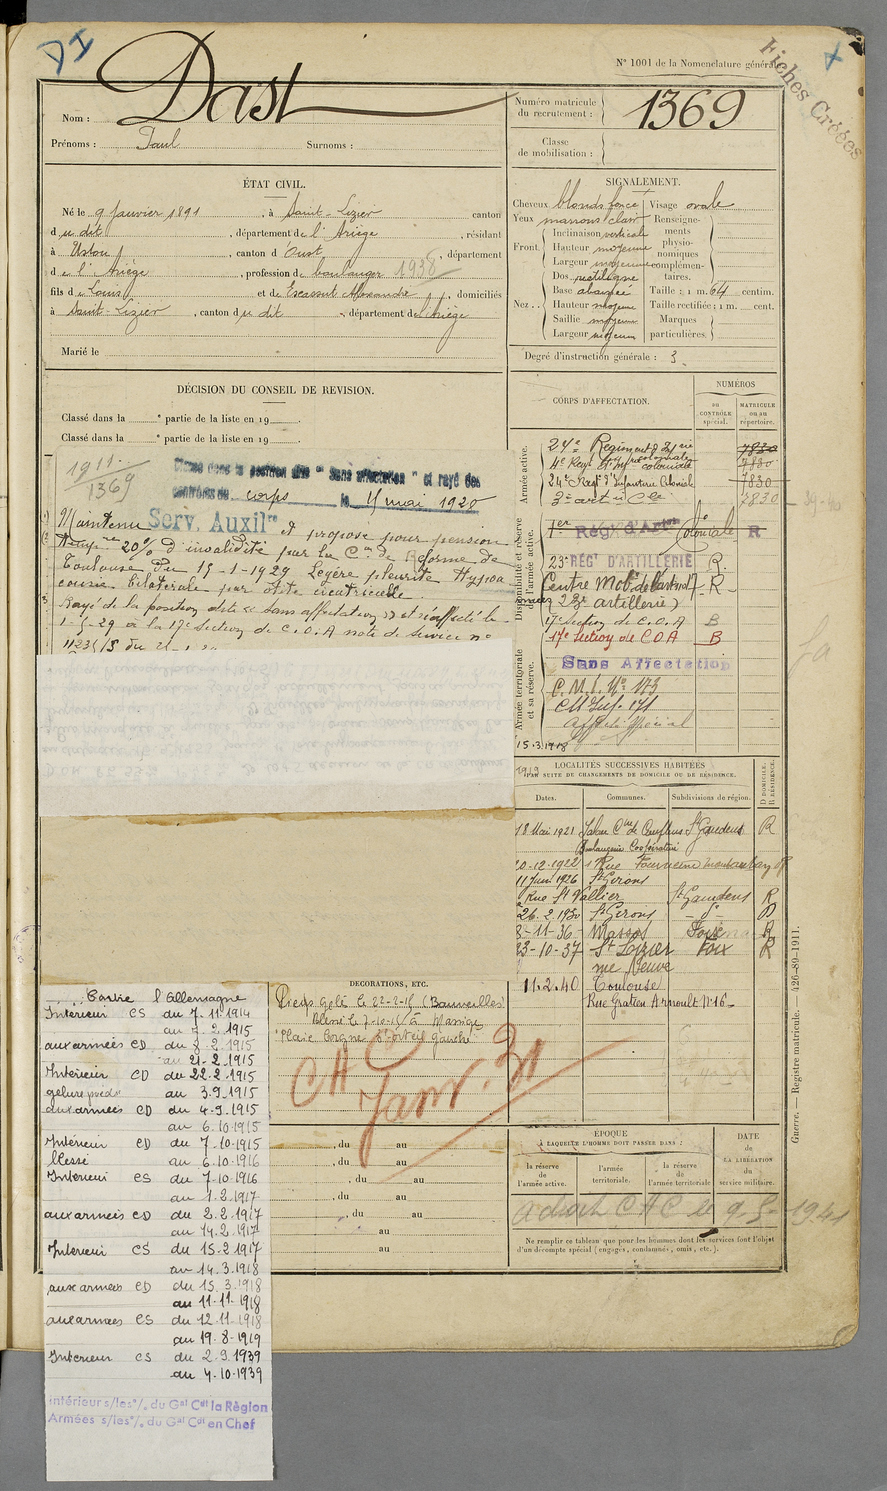 N° 1001 de la Nomenclature générale
Fiches Créées
Nom : Dast
Prénoms : Paul Surnoms :
Numéro matricule du recrutement : 1369
Classe de mobilisation :
ÉTAT CIVIL.
Né le 9 janvier 1891, à Saint-Lizier canton
du dit, département de l'Ariège, résidant
à Ustou, canton d'Oust, département
de l'Ariège, profession de boulanger 1938
fils de Louis et de Escassut Alexandrine, domiciliés
à Saint-Lizier, canton du dit, département de l'Ariège
Marié le
SIGNALEMENT.
Cheveux blonds foncé Visage ovale
Yeux marrons clair Renseigne-
Front. Inclinaison verticale ments
Hauteur moyenne physio-
Largeur moyenne nomiques
complémen-
Dos rectiligne taires.
Nez.. Base abaissé Taille : 1 m. 64 centim.
Hauteur moyenne Taille rectifiée : 1 m. cent.
Saillie moyenne Marques
Largeur moyenne particulières.
Degré d'instruction générale : 3.
DÉCISION DU CONSEIL DE REVISION.
Classé dans la e partie de la liste en 19 .
Classé dans la e partie de la liste en 19 .
1911.
1369
Classé dans la position dite "Sans affectation" et rayé des
contrôles du corps le 4 mai 1920
Maintenu Serv. Auxil re et proposé pour pension
20% d'invalidité par la Con de Réforme de
Toulouse du 15-1-1929 Légère pleurite Hypoa
cousie bilatérale par otite cicatricielle.
Rayé de la position dite "sans affectation" et réaffecté le
1-5-29 à la 17e section de C.O.A note de service n°
CORPS D'AFFECTATION.
NUMÉROS
au CONTRÔLE spécial.
MATRICULE ou au répertoire.
Armée active.
24e Régiment d'Infrie coloniale 7830
4e Reg. d'Infrie coloniale 7830
24e Regt d'Infanterie Coloniale 7830
7830
Disponibilité et réserve de l'armée active.
1er Rég. d'Artie Coloniale R
23e RÉGt D'ARTILLERIE R.
Centre Mob. d'artie 17 R
23e artillerie)
17e Section de C.O.A B
17e Section de COA B
Armée territoriale et sa réserve.
Sans Affectation
C.M.I. N° 173
CM Inf. 171
Affecté Spécial
15.3.1918
LOCALITÉS SUCCESSIVES HABITÉES
PAR SUITE DE CHANGEMENTS DE DOMICILE OU DE RÉSIDENCE.
Dates. Communes. Subdivisions de région. D DOMICILE. R RÉSIDENCE.
18 Mai 1921 St Gaudens R
Boulangerie Coopérative
20-12-1922 Rue
11 Juin 1926 St Girons
Rue St Vallier St Gaudens R
26.2.1930 St Girons - d° - D
8-11-36 Massat Foix R
23-10-37 St Lizier Foix R
rue Neuve
11.2.40 Toulouse
Rue Gratien Arnoult N°16
Contre l'Allemagne
Intérieur CS du 7.11.1914
au 7.2.1915
aux armées CD du 8.2.1915
au 21.2.1915
Intérieur CD du 22.2.1915
gelure pieds au 3.9.1915
aux armées CD du 4-9.1915
au 6.10.1915
Intérieur CD du 7.10.1915
blessé au 6.10.1916
Intérieur CS du 7.10.1916
au 1.2.1917
aux armées CD du 2.2.1917
au 14.2.1917
Intérieur CS du 15.2.1917
au 14.3.1918
aux armées CD du 15.3.1918
au 11.11.1918
aux armées CS du 12.11.1918
au 19.8.1919
Intérieur CS du 2.9.1939
au 4.10.1939
Intérieur s/les °/. du Gal Cdt la Règion
Armées s/les °/. du Gal Cdt en Chef
DECORATIONS, ETC.
Pieds gelés le 22-2-15
Blessé le 7-10-15 à Massige
"Plaie gauche"
CA Janv. 31
, du au
, du au
, du au
, du au
au
au
ÉPOQUE
À LAQUELLE L'HOMME DOIT PASSER DANS :
la réserve de l'armée active.
l'armée territoriale.
la réserve de l'armée territoriale
DATE de LA LIBÉRATION du service militaire.
9-5-1941
Ne remplir ce tableau que pour les hommes dont les services font l'objet
d'un décompte spécial (engagés, condamnés, omis, etc.).
Guerre. — Registre matricule. — 426-89-1911.